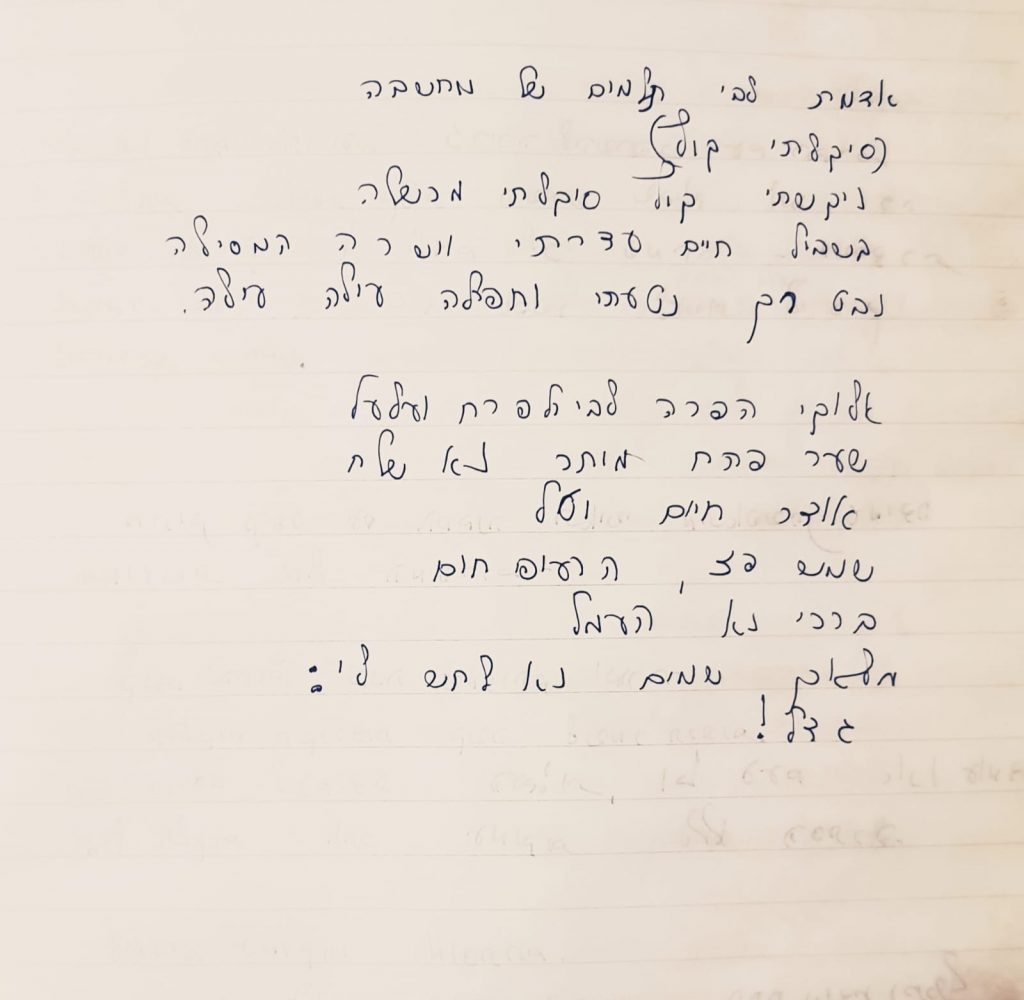 אדמת לבי תלמים של מחשבה
(סיקלתי קול)
ניקשתי קול סוקלתי מכשלה
בשביל חיים עדרתי וושרה המסילה
נבט רך נטעתי וחפצלה עילה עילה.
אלוקי הפרה לבי לפרח ועלעל
שער פתח מותר נא שלח
אוצר חיום ועל
שמש פז, הרעיפ חום
ברכי נא העמל
מלאכ שמים נא לחש לי:
גדל!